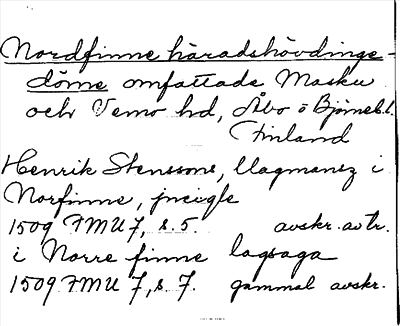 Nordfinne häradshövdinge-
döme omfattade Masku
och Vemo hd, Åbo o Björneb. l.
Finland
Henrik Stenssons, llagmansz i
Norfinne, jncigle
1509 FMU 7, s. 5. avskr. av tr.
i Norre finne lagsaga
1509 FMU 7, s. 7. gammal avskr.